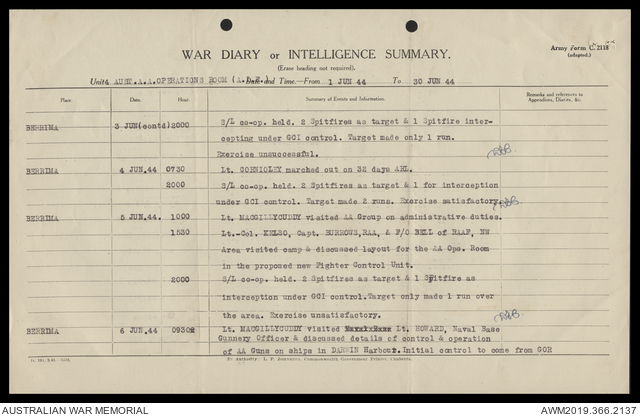 Army Form C. 2118
(adapted.)
WAR DIARY or INTELLIGENCE SUMMARY.
(Erase heading not required).
Unit AUST.A.A.OPERATIONS ROOM Date and Time.—From 1 JUN 44 To 30 JUN 44
Place. Date. Hour. Summary of Events and Information. Remarks and references to Appendices, Diaries, &c.
BERRIMA 3 JUN(contd) 2000 S/L co-op. held. 2 Spitfires as target & 1 Spitfire inter-
cepting under GCI control. Target made only 1 run.
Exercise unsuccessful.
BERRIMA 4 JUN.44 0730 Lt. CORNIOLEY marched out on 32 days ARL.
2000 S/L co-op. held. 2 Spitfires as target & 1 for interception
under GCI control. Target made 2 runs. Exercise satisfactory.
BERRIMA 5 JUN.44. 1000 Lt. MACGILLYCUDDY visited AA Group on administrative duties.
1530 Lt.-Col. KELSO, Capt. BURROWS,RAA, & F/O BELL of RAAF, NW
Area visited camp & discussed layout for the AA Ops. Room
in the proposed new Fighter Control Unit.
2000 S/L co-op. held. 2 Spitfires as target & 1 Spitfire as
interception under GCI control.Target only made 1 run over
the area. Exercise unsatisfactory.
BERRIMA 6 JUN.44 0930 Lt. MACGILLYCUDDY visited Lt. HOWARD, Naval Base
Gunnery Officer & discussed details of control & operation
of AA Guns on ships in DARWIN Harbour.Initial control to come from GOR
By Authority: L. F. Johnston, Commonwealth Government Printer, Canberra.
AUSTRALIAN WAR MEMORIAL
AWM2019.366.2137